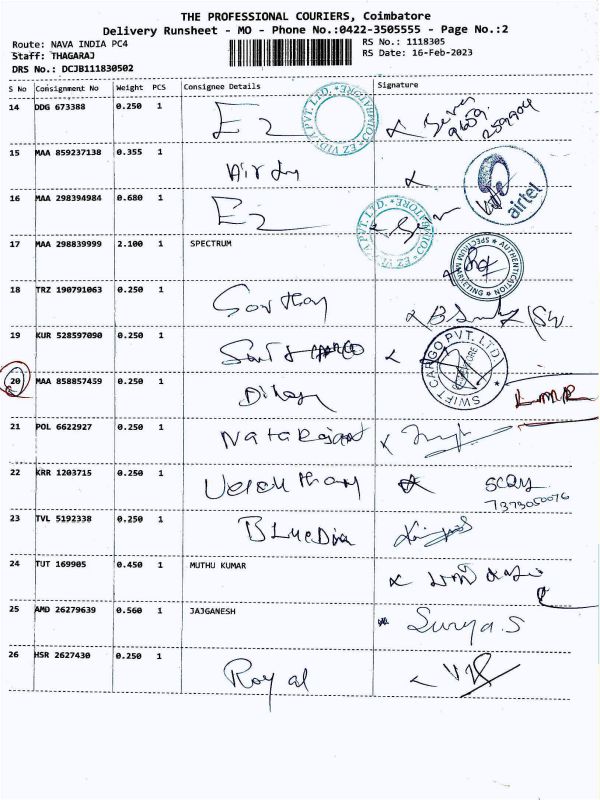 THE PROFESSIONAL COURIERS, Coimbatore
Delivery Runsheet - MO - Phone No.:0422-3505555 - Page No.:2
Route: NAVA INDIA PC4
RS No.: 1118305
Staff: THAGARAJ
RS Date: 16-Feb-2023
DRS No.: DCJB111830502
S No Consignment No Weight PCS Consignee Details Signature
14 DDG 673388 0.250 1 Ez
15 MAA 859237138 0.355 1 airtel
16 MAA 298394984 0.680 1 Ez
17 MAA 298839999 2.100 1 SPECTRUM
SPECTRUM MARKETING * AUTHENTICATION
18 TRZ 190791063 0.250 1
19 KUR 528597090 0.250 1
SWIFT CARGO PVT. LTD. COIMBATORE
20 MAA 858857459 0.250 1
21 POL 6622927 0.250 1 Natarajan
22 KRR 1203715 0.250 1
7373050076
23 TVL 5192338 0.250 1 BlueDia
24 TUT 169905 0.450 1 MUTHU KUMAR
25 AMD 26279639 0.560 1 JAJGANESH Surya.S
26 HSR 2627430 0.250 1 Royal